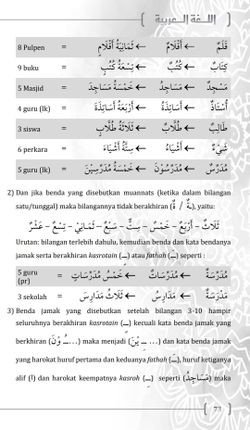 اللغة العربية
8 Pulpen = قَلَمٌ ← أَقْلَامٌ ← ثَمَانِيَةُ أَقْلَامٍ
9 buku = كِتَابٌ ← كُتُبٌ ← تِسْعَةُ كُتُبٍ
5 Masjid = مَسْجِدٌ ← مَسَاجِدُ ← خَمْسَةُ مَسَاجِدَ
4 guru (lk) = أُسْتَاذٌ ← أَسَاتِذَةٌ ← أَرْبَعَةُ أَسَاتِذَةَ
3 siswa = طَالِبٌ ← طُلَّابٌ ← ثَلَاثَةُ طُلَّابٍ
6 perkara = شَيْءٌ ← أَشْيَاءُ ← سِتَّةُ أَشْيَاءَ
5 guru (lk) = مُدَرِّسٌ ← مُدَرِّسُوْنَ ← خَمْسَةُ مُدَرِّسِيْنَ
2) Dan jika benda yang disebutkan muannats (ketika dalam bilangan
satu/tunggal) maka bilangannya tidak berakhiran (ةٌ / ةُ), yaitu:
ثَلَاث – أَرْبَع – خَمْس – سِتّ – سَبْع – ثَمَانِي – تِسْع – عَشْر
Urutan: bilangan terlebih dahulu, kemudian benda dan kata bendanya
jamak serta berakhiran kasrotain (ـٍ) atau fathah (ـَ) seperti :
5 guru (pr) = مُدَرِّسَةٌ ← مُدَرِّسَاتٌ ← خَمْسُ مُدَرِّسَاتٍ
3 sekolah = مَدْرَسَةٌ ← مَدَارِسُ ← ثَلَاثُ مَدَارِسَ
3) Benda jamak yang disebutkan setelah bilangan 3-10 hampir
seluruhnya berakhiran kasrotain (ـٍ) kecuali kata benda jamak yang
berkhiran (ـُ...وْنَ) maka menjadi (ـِ ...يْنَ) dan kata benda jamak
yang harokat huruf pertama dan keduanya fathah (ـَ), huruf ketiganya
alif (ا) dan harokat keempatnya kasroh (ـِ) seperti (مَسَاجِدُ) maka
71